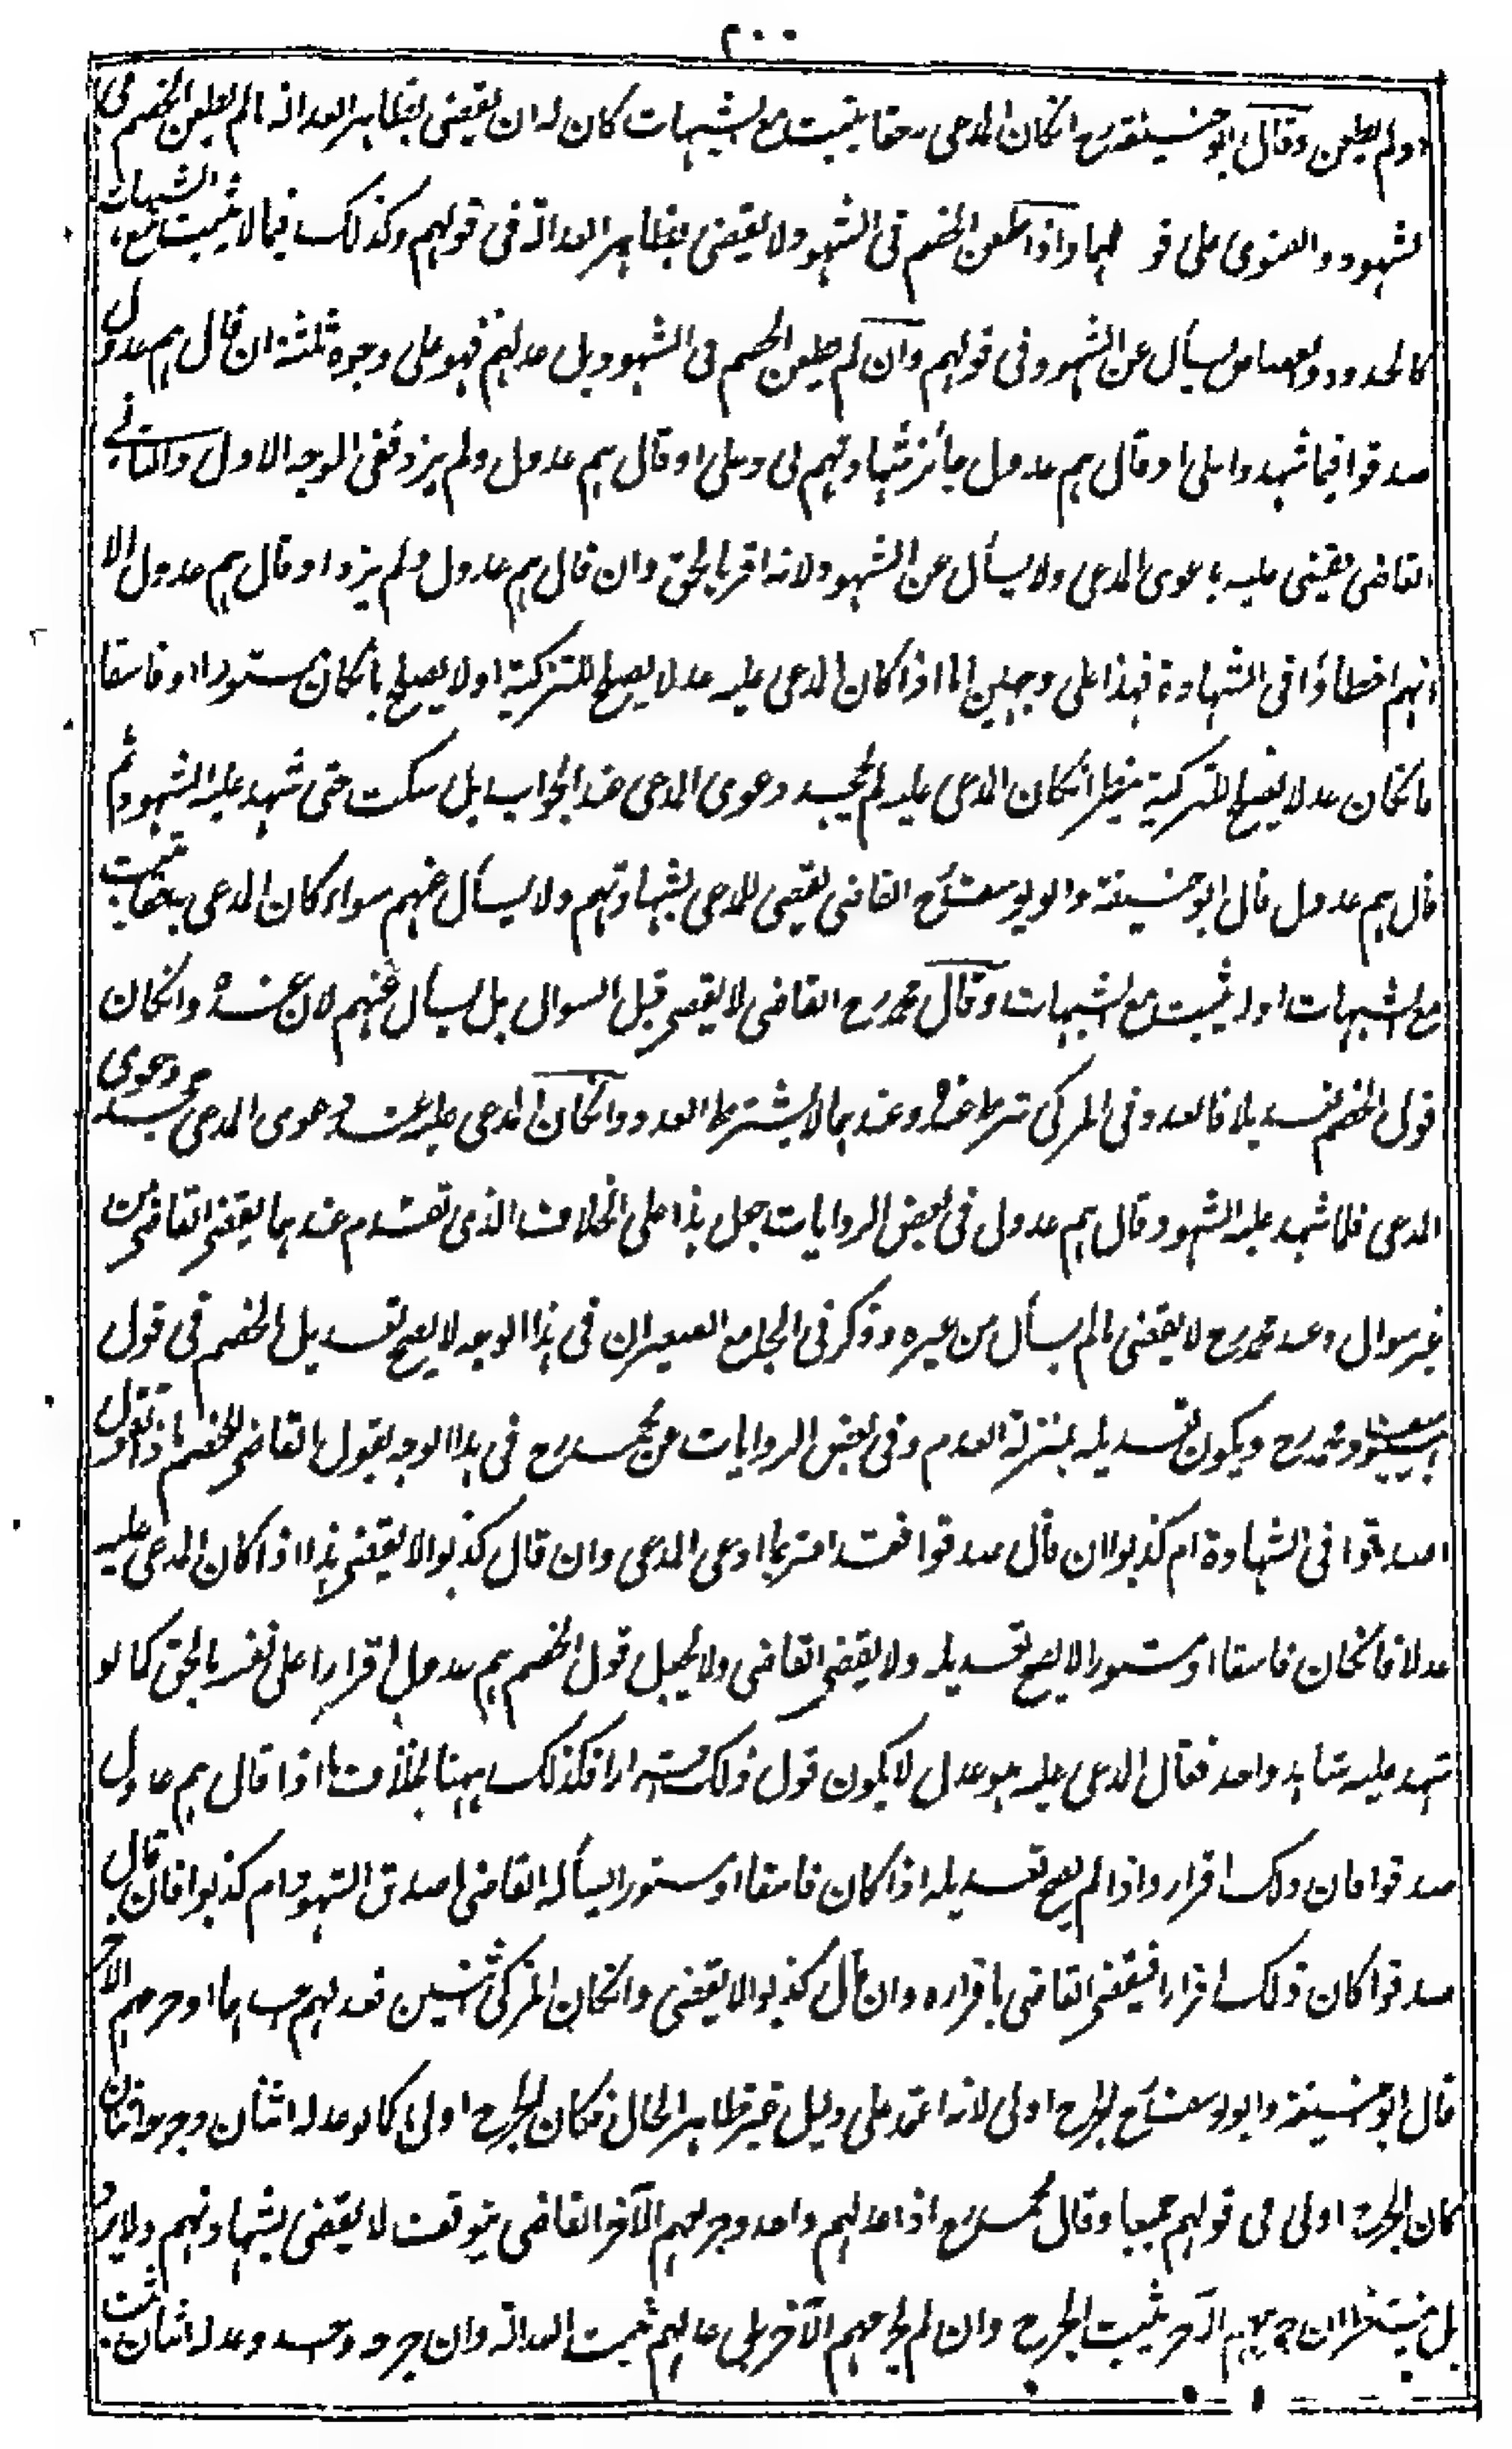 ٢٠٠
او لم يطعن وقال ابو حنيفة رح انكان المدعى حقا يثبت مع الشبهات كان له ان يقضى بظاهر العدالة مالم يطعن الخصم فى
الشهود والفتوى على قولهما واذا طعن الخصم فى الشهود لا يقضى بظاهر العدالة فى قولهم وكذلك فيما لا يثبت مع الشبهات
كالحدود والقصاص يسأل عن الشهود فى قولهم وان لم يطعن الخصم فى الشهود وبل عدلهم فهو على وجوه ثلثة ان قال هم عدول
صدقوا فيما شهدوا على او قال هم عدول جائز شهادتهم لى وعلى او قال هم عدول ولم يزد ففى الوجه الاول والثانى
القاضى يقضى عليه بدعوى المدعى ولا يسأل عن الشهود لانه اقر بالحق وان قال هم عدول ولم يزد او قال هم عدول الا
انهم اخطأوا فى الشهادة فهذا على وجهين اما اذا كان المدعى عليه عدلا يصلح للتزكية او لا يصلح بانكان مستورا او فاسقا
فانكان عدلا يصلح للتزكية ينظر انكان المدعى عليه لم يجحد دعوى المدعى عند الجواب بل سكت حتى شهد عليه الشهود ثم
قال هم عدول قال ابو حنيفة وابو يوسف رح القاضى يقضى للمدعى بشهادتهم ولا يسأل عنهم سواء كان المدعى به حقا يثبت
مع الشبهات او لا يثبت مع الشبهات وقال محمد رح القاضى لا يقضى قبل السوال بل يسأل عنهم لان عنده وانكان
قول الخصم تعديلا فالعدد فى المزكى شرط عنده وعندهما لا يشترط العدد وانكان المدعى عليه عند دعوى المدعى جحد دعوى
المدعى فلما شهد عليه الشهود قال هم عدول فى بعض الروايات جعل هذا على الخلاف الذى تقدم عندهما يقضى القاضى من
غير سوال وعند محمد رح لا يقضى مالم يسأل من غيره وذكر فى الجامع الصغير ان فى هذا الوجه لا يصح تعديل الخصم فى قول
ابى يوسف ومحمد رح ويكون تعديله بمنزلة العدم وفى بعض الروايات عن محمد رح فى هذا الوجه يقول القاضى للخصم ماذا تقول
اصدقوا فى الشهادة ام كذبوا ان قال صدقوا فقد اقر بما ادعى المدعى وان قال كذبوا لا يقضى هذا اذا كان المدعى عليه
عدلا فانكان فاسقا او مستورا لا يصح تعديله ولا يقضى القاضى ولا يجعل قول الخصم هم عدول اقرارا على نفسه بالحق كما لو
شهد عليه شاهد واحد فقال المدعى عليه هو عدل لا يكون قول ذلك اقرارا فكذلك ههنا بخلاف ما اذا قال هم عدول
صدقوا فان ذلك اقرار واذا لم يصح تعديله اذا كان فاسقا او مستورا يسأله القاضى اصدق الشهود ام كذبوا فان قال
صدقوا كان ذلك اقرارا فيقضى القاضى باقراره وان قال كذبوا لا يقضى وانكان المزكى اثنين فعدلهم احدهما وجرحهم الاخر
قال ابو حنيفة وابو يوسف رح الجرح اولى لانه اعتمد على دليل غير ظاهر الحال فكان الجرح اولى كما لو عدله اثنان وجرحه اثنان
كان الجرح اولى فى قولهم جميعا وقال محمد رح اذا عدلهم واحد وجرحهم الآخر القاضى يتوقف لا يقضى بشهادتهم ولا يرد
بل ينتظر ان جرحهم آخر يثبت الجرح وان لم يجرحهم الآخر بل عدلهم ثبت العدالة وان جرحه واحد وعدله اثنان ثبت